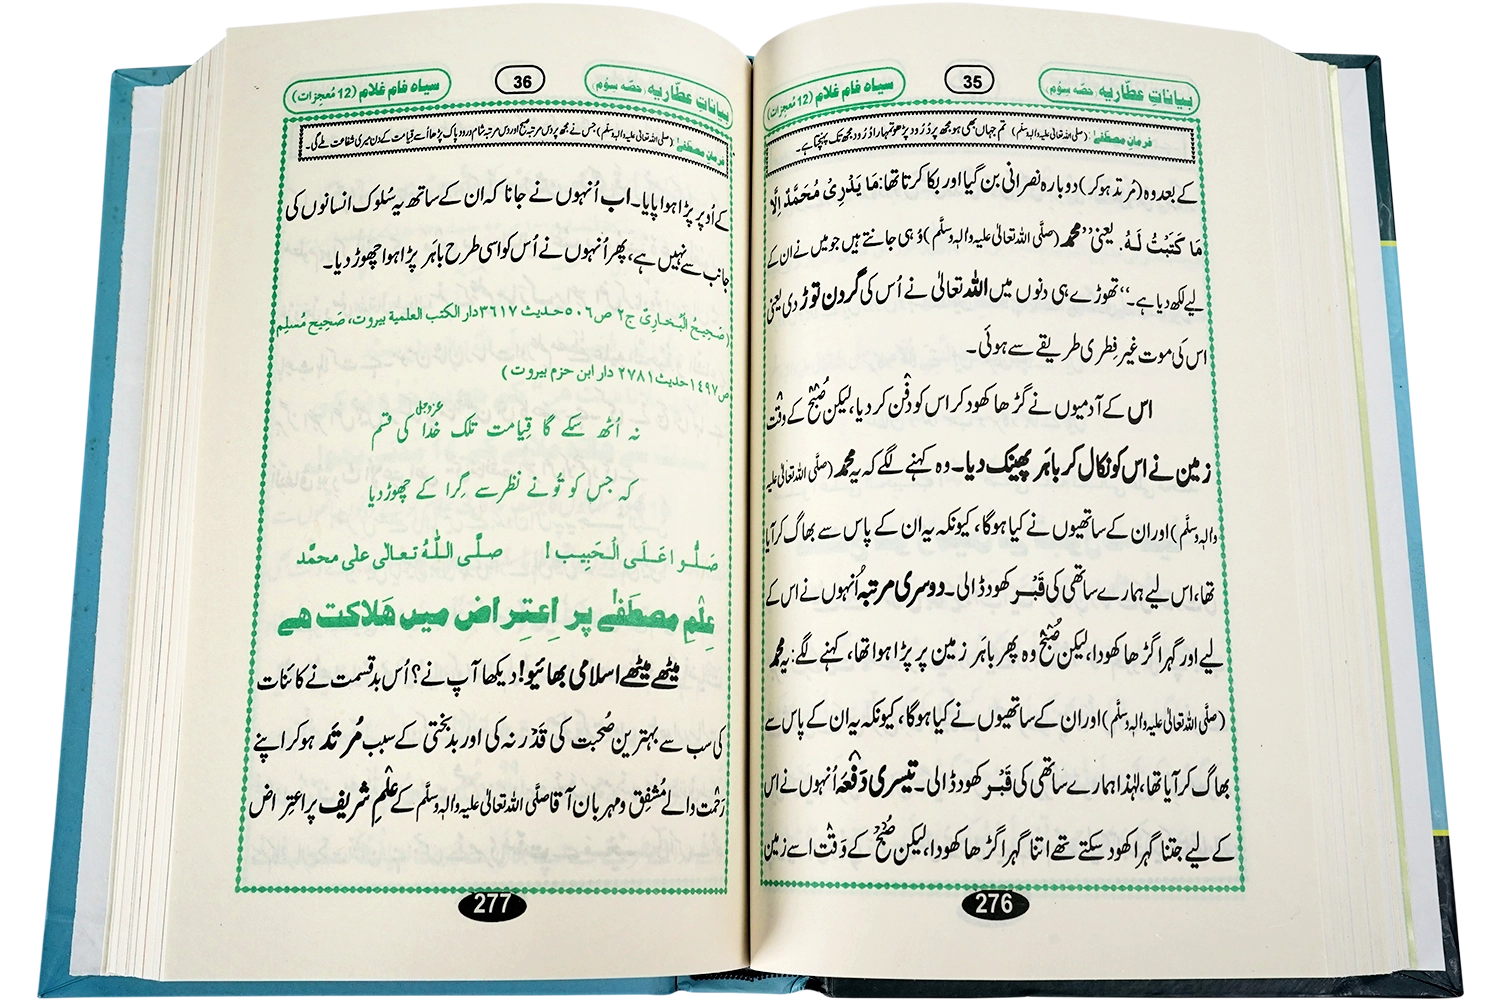 بیاناتِ عطّاریہ (حصّہ سِوُم)
35
سیاہ فام غلام (12 مُعجِزات)
فرمانِ مصطفٰے: (صلی اللہ تعالیٰ علیہ والہ وسلم) تم جہاں بھی ہو مجھ پر دُرُود پڑھو تمہارا دُرُود مجھ تک پہنچتا ہے۔
کے بعد وہ (مُرتد ہو کر) دوبارہ نصرانی بن گیا اور بکا کرتا تھا: مَا یَدْرِیْ مُحَمَّدٌ اِلَّا
مَا کَتَبْتُ لَہٗ. یعنی ’’محمد (صلَّی اللہ تعالیٰ علیہ والہٖ وسلَّم) وُہی جانتے ہیں جو میں نے ان کے
لیے لکھ دیا ہے۔‘‘ تھوڑے ہی دنوں میں اللہ تعالیٰ نے اُس کی گردن توڑ دی یعنی
اس کی موت غیر فِطری طریقے سے ہوئی۔
اس کے آدمیوں نے گڑھا کھود کر اس کو دفْن کر دیا، لیکن صُبْح کے وقْت
زمین نے اس کو نکال کر باہَر پھینک دیا۔ وہ کہنے لگے کہ یہ محمد (صلَّی اللہ تعالیٰ علیہ
والہٖ وسلَّم) اور ان کے ساتھیوں نے کیا ہوگا، کیونکہ یہ ان کے پاس سے بھاگ کر آیا
تھا، اس لیے ہمارے ساتھی کی قَبْر کھود ڈالی۔ دوسری مرتبہ اُنہوں نے اس کے
لیے اور گہرا گڑھا کھودا، لیکن صُبْح وہ پھر باہَر زمین پر پڑا ہوا تھا، کہنے لگے: یہ محمد
(صلَّی اللہ تعالیٰ علیہ والہٖ وسلَّم) اور ان کے ساتھیوں نے کیا ہوگا، کیونکہ یہ ان کے پاس سے
بھاگ کر آیا تھا، لہٰذا ہمارے ساتھی کی قَبْر کھود ڈالی۔ تیسری دَفْعَہ اُنہوں نے اس
کے لیے جتنا گہرا کھود سکتے تھے اتنا گہرا گڑھا کھودا، لیکن صُبْح کے وَقْت اسے زمین
276
بیاناتِ عطّاریہ (حصّہ سِوُم)
36
سیاہ فام غلام (12 مُعجِزات)
فرمانِ مصطفٰے: (صلی اللہ تعالیٰ علیہ والہ وسلم) جس نے مجھ پر دس مرتبہ صبح اور دس مرتبہ شام درود پاک پڑھا اُسے قیامت کے دن میری شفاعت ملے گی۔
کے اُوپر پڑا ہوا پایا۔ اب اُنہوں نے جانا کہ ان کے ساتھ یہ سُلوک انسانوں کی
جانب سے نہیں ہے، پھر اُنہوں نے اُس کو اسی طرح باہَر پڑا ہوا چھوڑ دیا۔
(صَحِیحُ الْبُخارِیّ ج۲ ص۵۰۶ حدیث ۳۶۱۷ دار الکتب العلمیۃ بیروت، صَحِیح مُسلِم
ص۱۴۹۷ حدیث ۲۷۸۱ دار ابن حزم بیروت)
نہ اُٹھ سکے گا قِیامت تلک خدا عزوجل کی قسم
کہ جس کو تُو نے نظر سے گِرا کے چھوڑ دیا
صَلُّوا عَلَی الْحَبِیب! صلَّی اللّٰہُ تعالٰی علٰی محمَّد
عِلْمِ مصطَفٰے پر اِعتِراض میں ھَلاکت ھے
میٹھے میٹھے اسلامی بھائیو! دیکھا آپ نے؟ اُس بدقسمت نے کائنات
کی سب سے بہترین صُحبت کی قَدْر نہ کی اور بدبختی کے سبب مُرتَد ہو کر اپنے
رَحْمت والے مُشفِق و مہربان آقا صلَّی اللہ تعالیٰ علیہ والہٖ وسلَّم کے عِلْمِ شریف پر اعتِراض
277